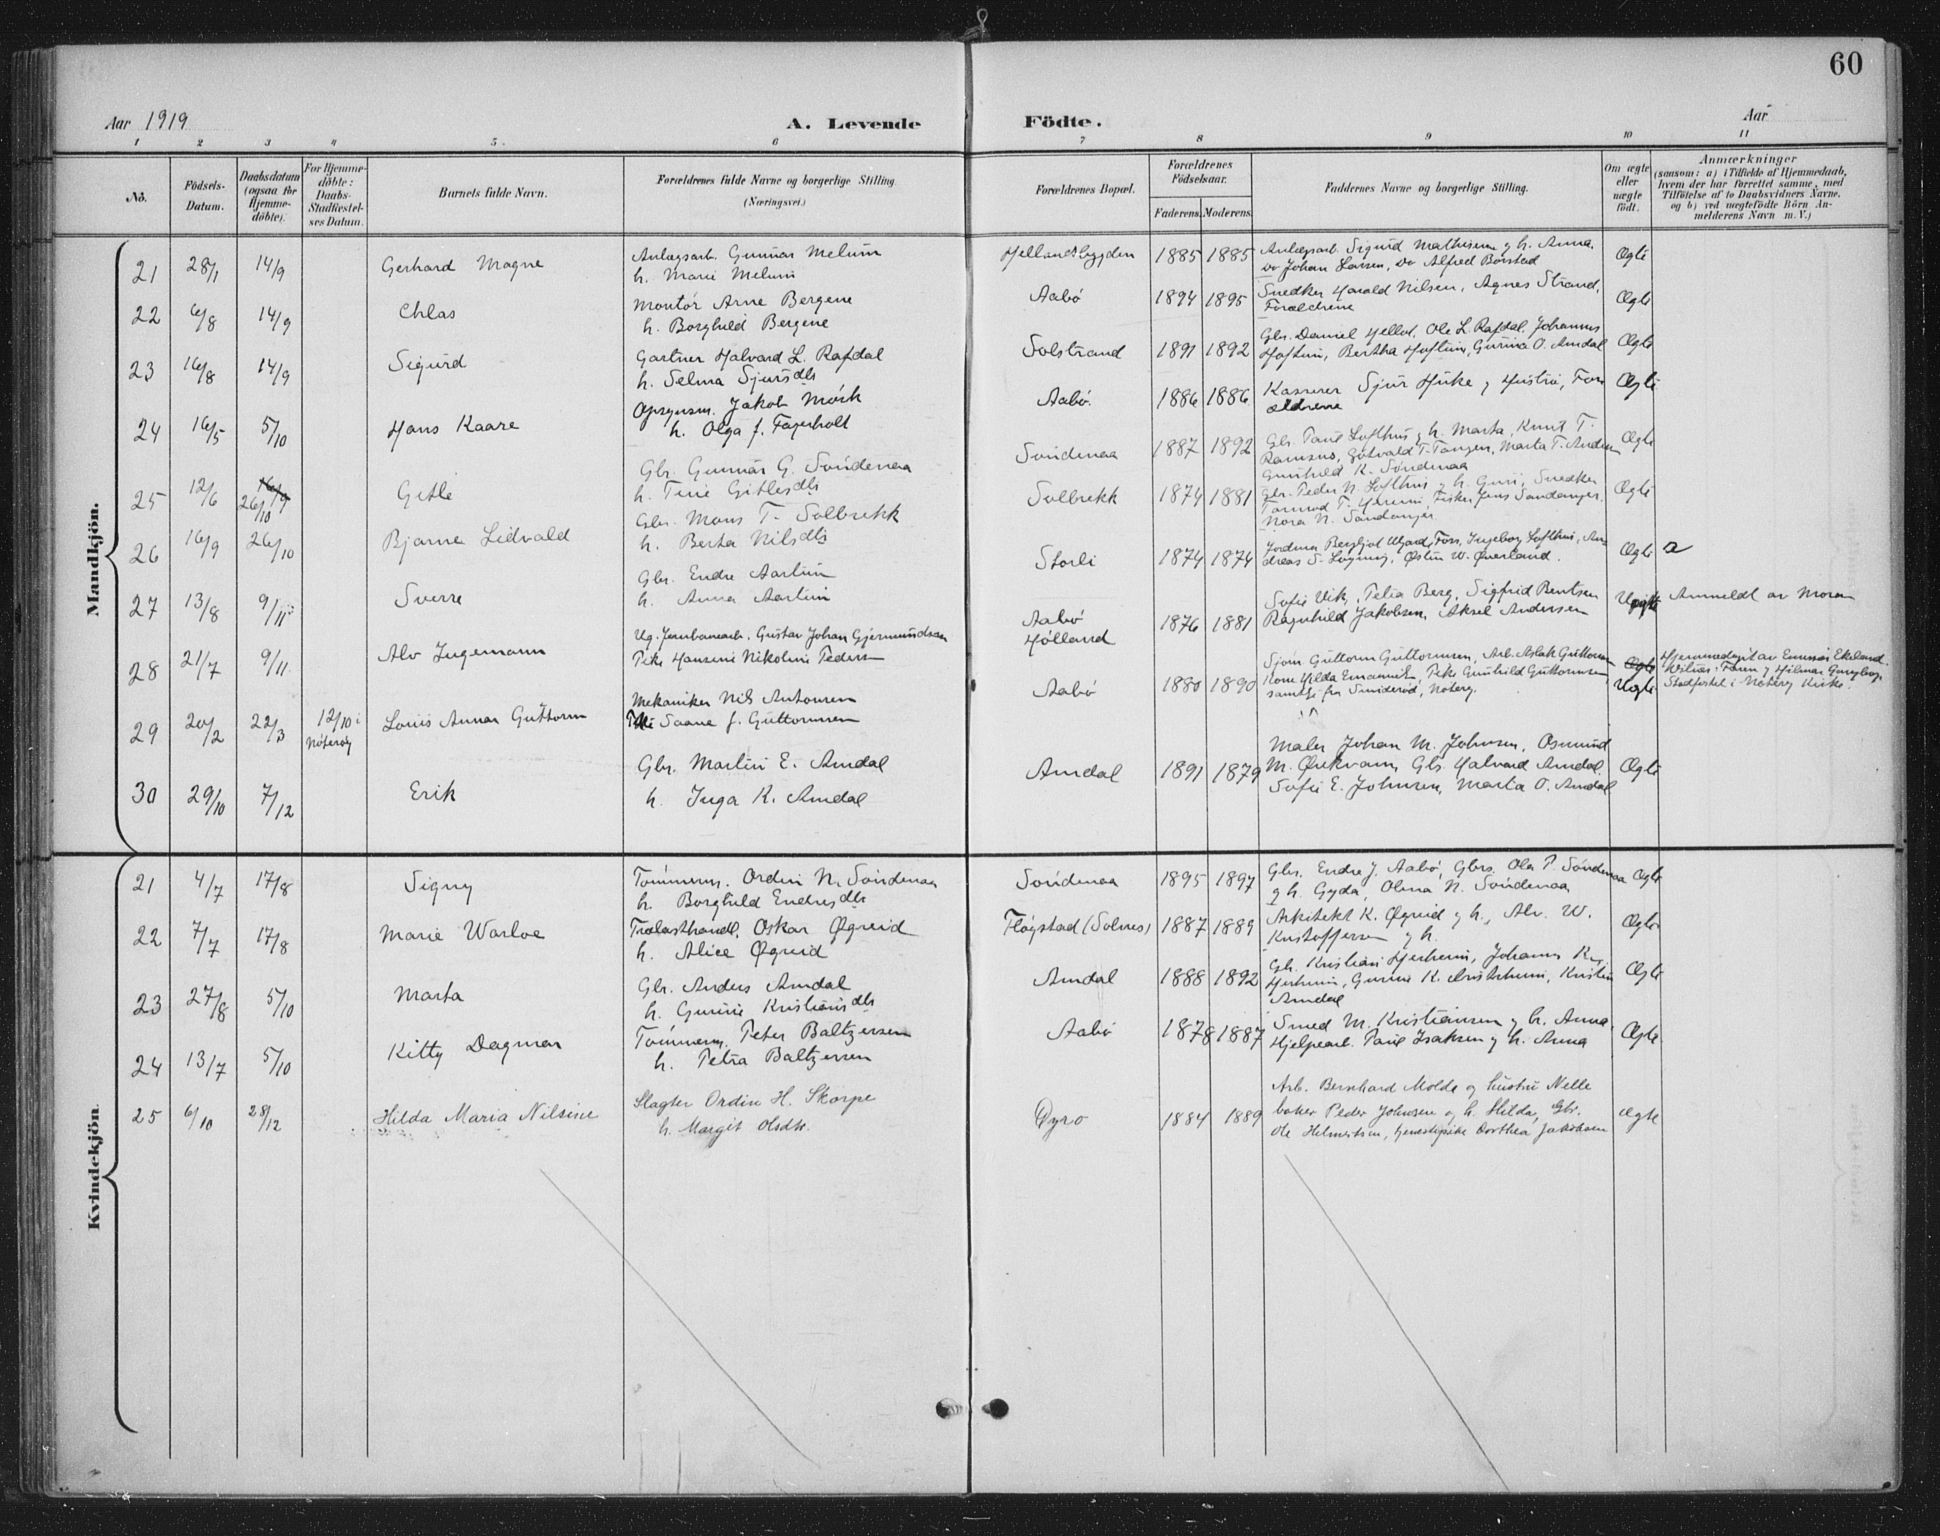 60
Aar 1919
A. Levende Födte.
Aar
1 2 3 4 5 6 7 8 9 10 11
No.
Födsels-Datum.
Daabsdatum (ogsaa for Hjemme-döbte).
For Hjemme-döbte: Daabs-Stadfæstel-ses Datum.
Barnets fulde Navn.
Forældrenes fulde Navne og borgerlige Stilling. (Næringsvei.)
Forældrenes Bopæl.
Forældrenes Födselsaar.
Faderens. Moderens.
Faddernes Navne og borgerlige Stilling.
Om ægte eller uægte födt.
Anmærkninger
(saasom: a) i Tilfælde af Hjemmedaab,
hvem der har forrettet samme, med
Tilföielse af to Daabsvidners Navne,
og b) ved uægtefödte Börn An-
melderens Navn m. V.)
Mandkjön.
21 28/1 14/9 Gerhard Magne
Anlægsarb. Gunnar Melum
h. Marie Melum
Hellandsbygden 1885 1885
Anlægsarb. Sigurd Mathisen og h. Anna,
Do Johan Larsen, Do Alfred Borstad
Ægte
22 6/8 14/9 Chlas
Montör Arne Bergene
h. Borghild Bergene
Aabö 1894 1895
Snedker Harald Nilsen, Agnes Strand,
Forældrene
Ægte
23 16/8 14/9 Sigurd
Gartner Halvard L. Rafdal
h. Selma Sjursdtr
Solstrand 1891 1892
Gbr. Daniel Hellvi, Ole L. Rafdal, Johannes
Hoftun, Bertha Hoftun, Gurina O. Amdal
Ægte
24 16/5 5/10 Hans Kaare
Jakob Mørk
h. Olga f. Fagerholt
Aabö. 1886 1886
Kasserer Sjur Huke og Hustru, For-
ældrene
Ægte
25 12/6 14/9 26/10 Gitle
Gbr. Gunnar G. Sandenaa
h. Tine Gitlesdtr
Sandenaa 1887 1892
Gbr. Paul Lofthus og h. Marta, Knut T.
Ramsnö, Gotvald T. Tangen, Marta T.
Gunhild K. Søndenaa
Ægte
26 16/9 26/10 Bjarne Lidvald
Gbr. Mons T. Solbrekk
h. Berta Nilsdtr
Solbrekk 1874 1881
Gbr. Peder N. Lofthus og h. Guri, Snedker
Tormod T. Fisker Jens Sandanger
Nora N. Sandanger
Ægte
27 13/8 9/11 Sverre
Gbr. Endre Aartun
h. Anna Aartun
Storli 1874 1874
Ingeborg Lofthus, An-
dreas S. Østen W. Øverland.
Ægte a
28 21/7 9/11 Alv Ingemann
Ug. Jernbanearb. Gustav Johan Gjermundsen
Pike Hansine Nikoline Peders
Aabö
Hölland 1876 1881
Sofie Vik, Petra Berg, Sigfrid Bentsen
Ragnhild Jakobsen, Aksel Andersen
Uægte Anmeldt av Moren
29 20/2 22/3 12/10 i Nöteröy Louis Annar Guttorm
Mekaniker Nils Antonsen
Saane f. Guttormsen
Aabö 1880 1890
Sjøm Guttorm Guttormsen, Arb. Aslak Guttormsen
Kone Hilda Emanuel, Pike Gunhild Guttormsen,
samtlige fra Nøterøy.
Ægte Uægte
Hjemmedøpt av Ekeland.
Faren og Hilmar
Stadfestet i Nöterøy Kirke.
30 29/10 7/12 Erik
Gbr. Martin E. Amdal
h. Inga K. Amdal
Amdal 1891 1879
Maler Johan M. Johnsen, Osmund
M. Ørekvam, Gbr. Halvard Amdal
Sofie E. Johnsen, Marta O. Amdal
Ægte
Kvindekjön.
21 4/7 17/8 Signy
Tömmerm. Ordin N. Söndenaa
h. Borghild Endresdtr
Söndenaa 1895 1897
Gbr. Endre J. Aabö, Gbrs. Ola P. Söndenaa
og h. Gyda, Olena N. Söndenaa
Ægte
22 7/7 17/8 Marie Warloe
Trælasthandl. Oskar Øgreid
h. Alice Øgreid
Fløgstad (Solnes) 1887 1889
Arkitekt K. Øgreid og h., Alv. W.
Kristoffersen og h.
Ægte
23 27/8 5/10 Marta
Gbr. Anders Amdal
h. Gurine Kristiansdtr
Amdal 1888 1892
Gbr. Kristian Hjerheim, Johannes K.
Hjerheim, Gurine K. Kristin
Amdal
Ægte
24 13/7 5/10 Kitty Dagmar
Tömmerm. Peter Baltzersen
h. Petra Baltzersen
Aabö 1878 1887
Smed M. Kristiansen og h. Anna,
Hjelpearb. Paul Isaksen og h. Anna
Ægte.
25 6/10 28/12 Hilda Maria Nilsine
Slagter Ordin H. Skorpe
h. Margit Olsdtr.
Øyro 1884 1889
Arb. Bernhard Molde og hustru Nelle
baker Peder Johnsen og h. Hilda, Gbr.
Ole Helmersen, tjenestepike Dorthea Jakobsen
ægte